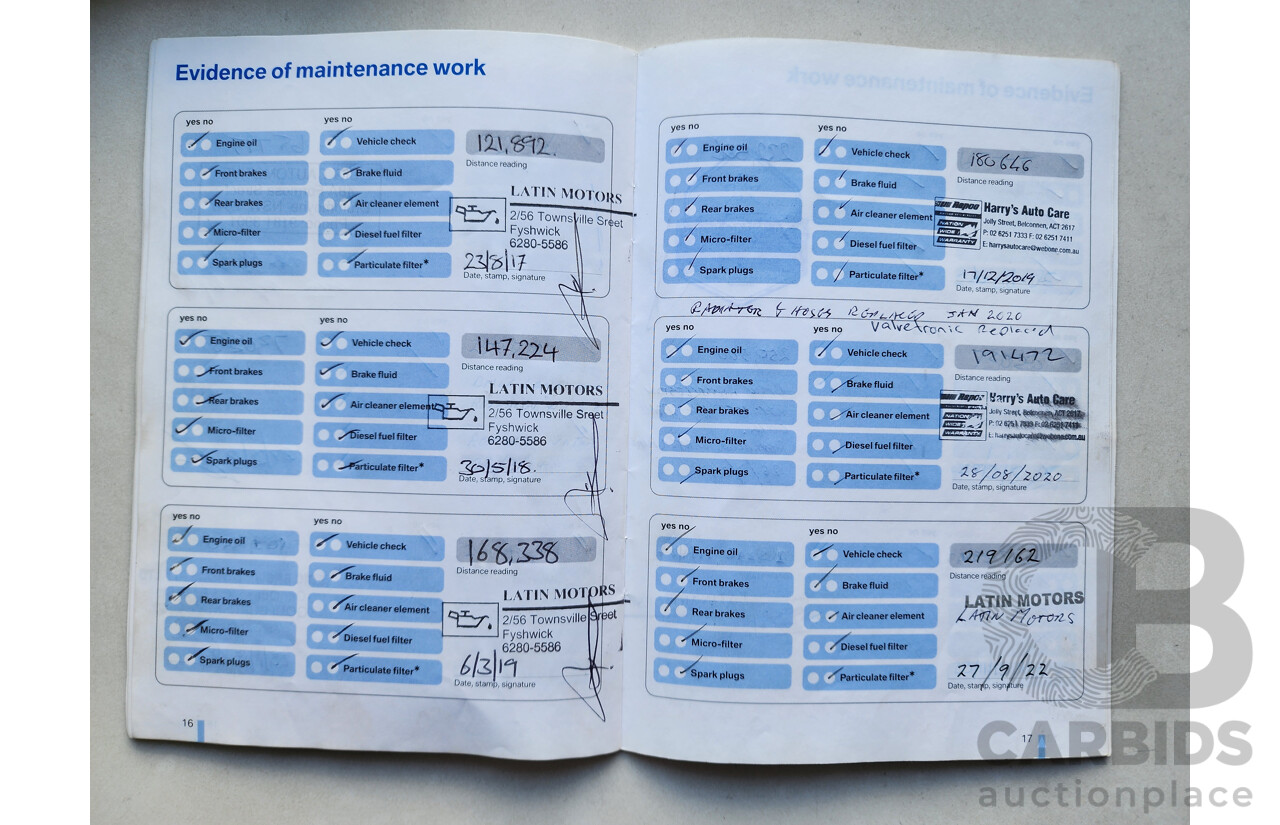 Evidence of maintenance work
yes no
yes no
Engine oil
Vehicle check
121,892.
Distance reading
Front brakes
Brake fluid
Rear brakes
Air cleaner element
Micro-filter
Diesel fuel filter
Spark plugs
Particulate filter*
LATIN MOTORS
2/56 Townsville Sreet
Fyshwick
6280-5586
23/8/17
Date, stamp, signature
yes no
yes no
Engine oil
Vehicle check
147,224
Distance reading
Front brakes
Brake fluid
Rear brakes
Air cleaner element
Micro-filter
Diesel fuel filter
Spark plugs
Particulate filter*
LATIN MOTORS
2/56 Townsville Sreet
Fyshwick
6280-5586
30/5/18.
Date, stamp, signature
yes no
yes no
Engine oil
Vehicle check
168,338
Distance reading
Front brakes
Brake fluid
Rear brakes
Air cleaner element
Micro-filter
Diesel fuel filter
Spark plugs
Particulate filter*
LATIN MOTORS
2/56 Townsville Sreet
Fyshwick
6280-5586
6/3/19
Date, stamp, signature
16
yes no
yes no
Engine oil
Vehicle check
180646
Distance reading
Front brakes
Brake fluid
Rear brakes
Air cleaner element
Micro-filter
Diesel fuel filter
Spark plugs
Particulate filter*
Repco
NATION
WIDE
WARRANTY
Harry's Auto Care
Jolly Street, Belconnen, ACT 2617
P: 02 6251 7333 F: 02 6251 7411
E: harrysautocare@webone.com.au
17/12/2019
Date, stamp, signature
RADIATOR & HOSES REPLACED JAN 2020
Valvetronic Replaced
yes no
yes no
Engine oil
Vehicle check
191472
Distance reading
Front brakes
Brake fluid
Rear brakes
Air cleaner element
Micro-filter
Diesel fuel filter
Spark plugs
Particulate filter*
Repco
NATION
WIDE
WARRANTY
Harry's Auto Care
Jolly Street, Belconnen, ACT 2617
P: 02 6251 7333 F: 02 6251 7411
E: harrysautocare@webone.com.au
28/08/2020
Date, stamp, signature
yes no
yes no
Engine oil
Vehicle check
219162
Distance reading
Front brakes
Brake fluid
Rear brakes
Air cleaner element
Micro-filter
Diesel fuel filter
Spark plugs
Particulate filter*
LATIN MOTORS
LATIN MOTORS
27/9/22
Date, stamp, signature
17
CARBIDS
auctionplace